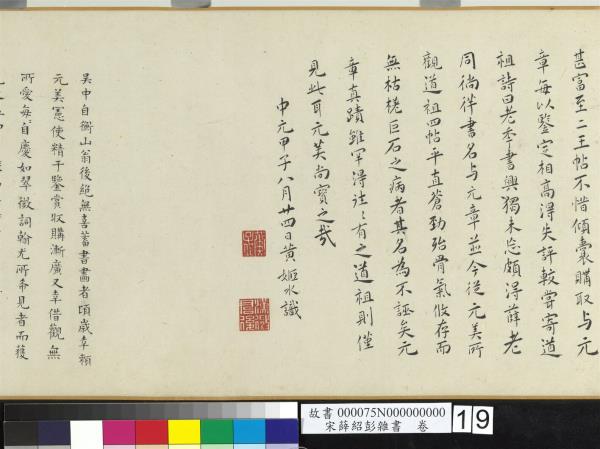 甚富至二王帖不惜傾囊購取与元
章每以鑒定相高得失評較嘗寄道
祖詩曰老來書興獨未忘頗得薛老
同徜徉書名与元章並今從元美所
觀道祖四帖平直蒼勁殆骨氣攸存而
無枯槎巨石之病者其名為不誣矣元
章真蹟雖罕得往往有之道祖則僅
見此耳元美尚寶之哉
中元甲子八月廿四日黃姬水識
吳中自衡山翁後絕無喜蓄書畫者頃歲幸賴
元美憲使精于鑒賞收購漸廣又幸借觀無
所愛每自慶如翠微詞翰尤所希見者而獲
故書 000075N000000000
宋薛紹彭雜書 卷
19